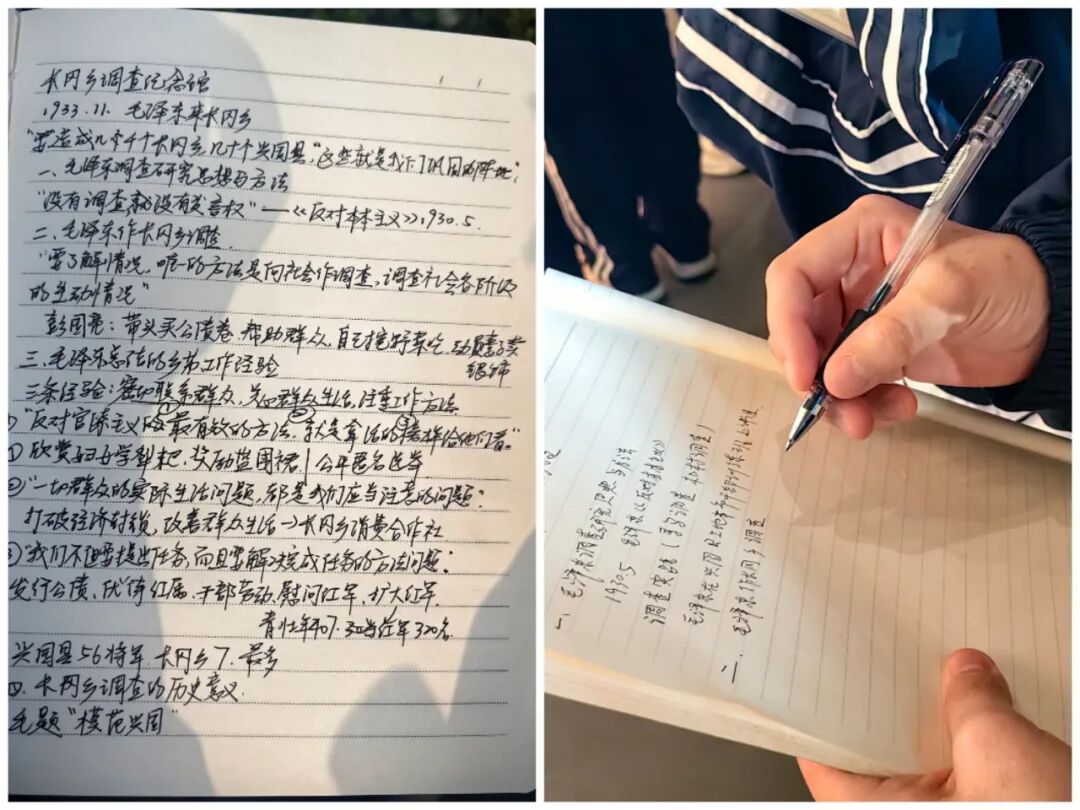 长冈乡调查纪念馆
1933.11. 毛泽东来长冈乡
"要造成几千个长冈乡,几十个兴国县,"这些就是我们巩固的阵地"。
一、毛泽东调查研究思想与方法
"没有调查,就没有发言权"——《反对本本主义》1930.5.
二、毛泽东作长冈乡调查.
"要了解情况,唯一的方法是向社会作调查,调查社会各阶级
的生动情况"
彭国亮:带头买公债卷,帮助群众,自己挖野菜吃,动员妻子卖
银饰
三、毛泽东总结的乡苏工作经验
三条经验:密切联系群众,关心群众生活,注重工作方法
"反对官僚主义的最有效的方法,就是拿活的榜样给他们看。"
① 欣赏妇女学犁耙,奖励蓝围裙 公平匿名选举
②"一切群众的实际生活问题,都是我们应当注意的问题"
打破经济封锁,改善群众生活→长冈乡消费合作社
③"我们不但要提出任务,而且要解决完成任务的方法问题"
发行公债、优待红属、干部劳动、慰问红军、扩大红军.
青壮年407. 320当红军 320名
兴国县56将军.长冈乡7.最多
四、长冈乡调查的历史意义.
毛题"模范兴国"
一、毛泽东调查研究思想与方法
1930.5 毛泽东《反对本本主义》
调查实践
毛泽东在兴国
二、毛泽东作长冈乡调查